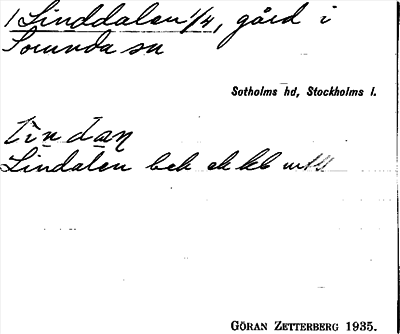 1 Linddalen 1/4, gård i
Sorunda sn
Sotholms hd, Stockholms l.
Lindalen bek ek kb
GÖRAN ZETTERBERG 1935.